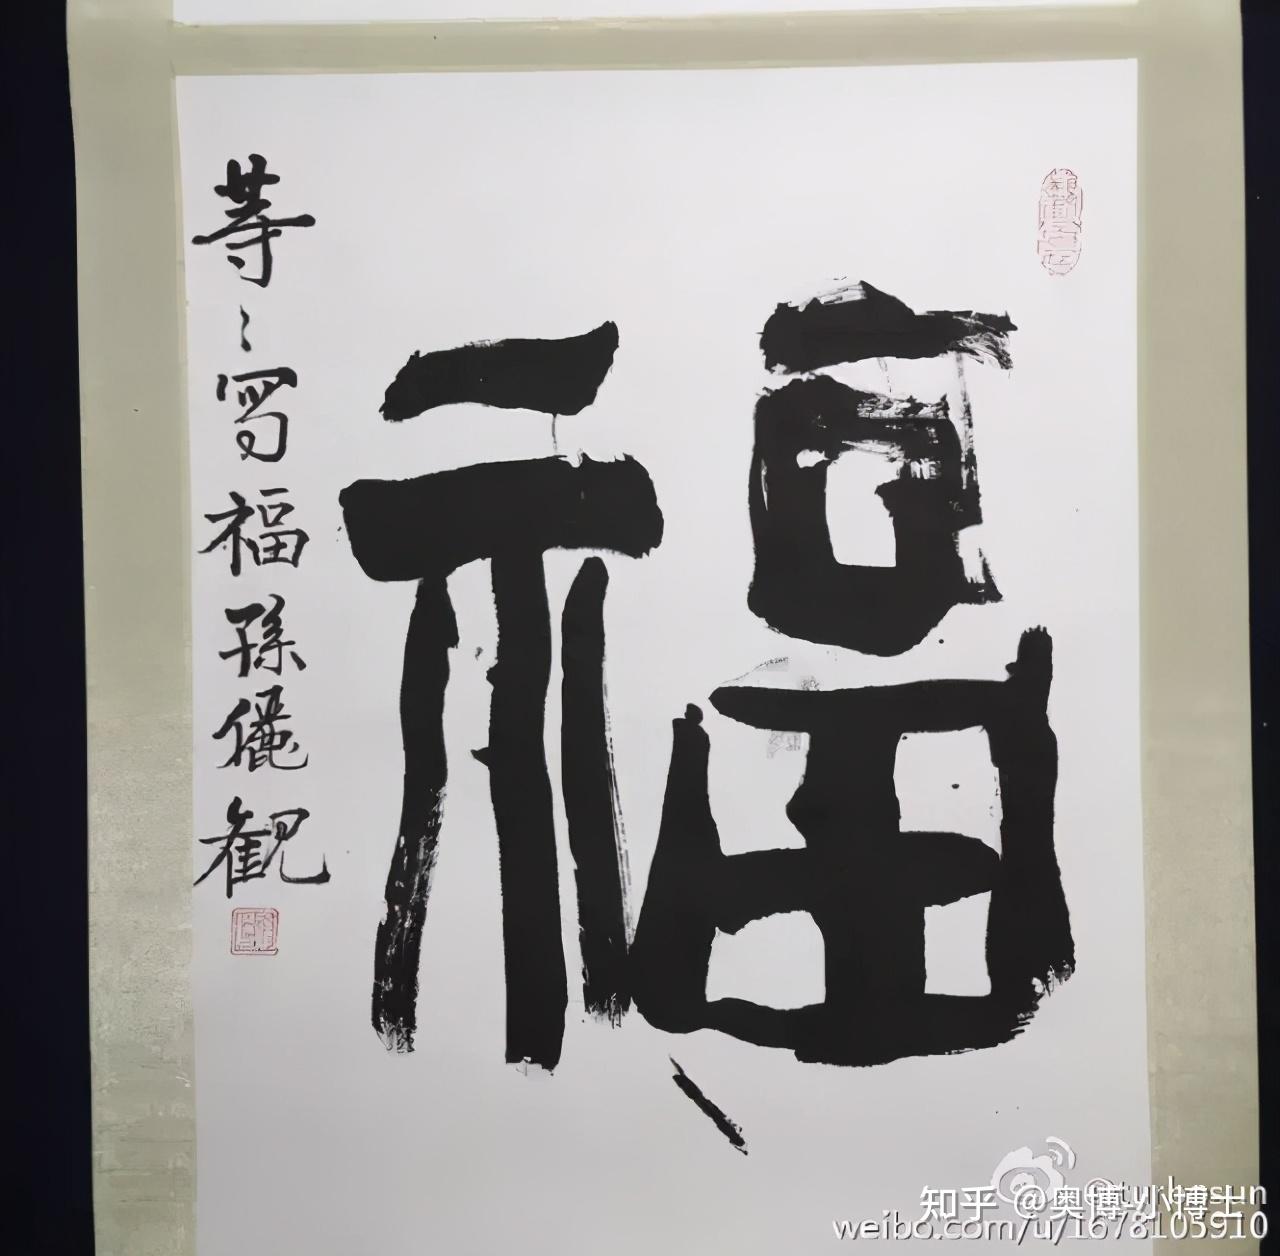 福
等〻写福孫儷観
知乎 @奥博小博士
weibo.com/u/1678105910